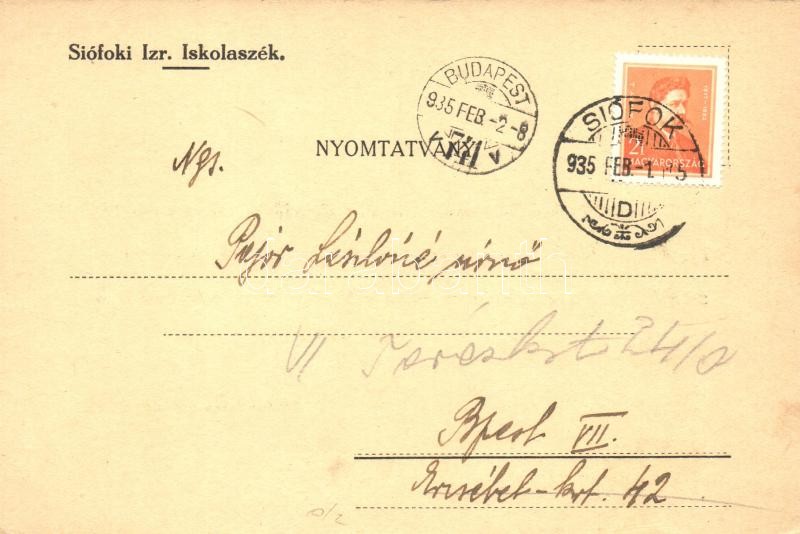 Siófoki Izr. Iskolaszék.
BUDAPEST
935 FEB. -2 -8
SIÓFOK
935 FEB. -1
D
MAGYARORSZÁG
NYOMTATVÁNY
Ngs.
Pajor Lászlóné úrnő
VI Teréz krt 24/a
Bpest VII.
Erzsébet-krt. 42